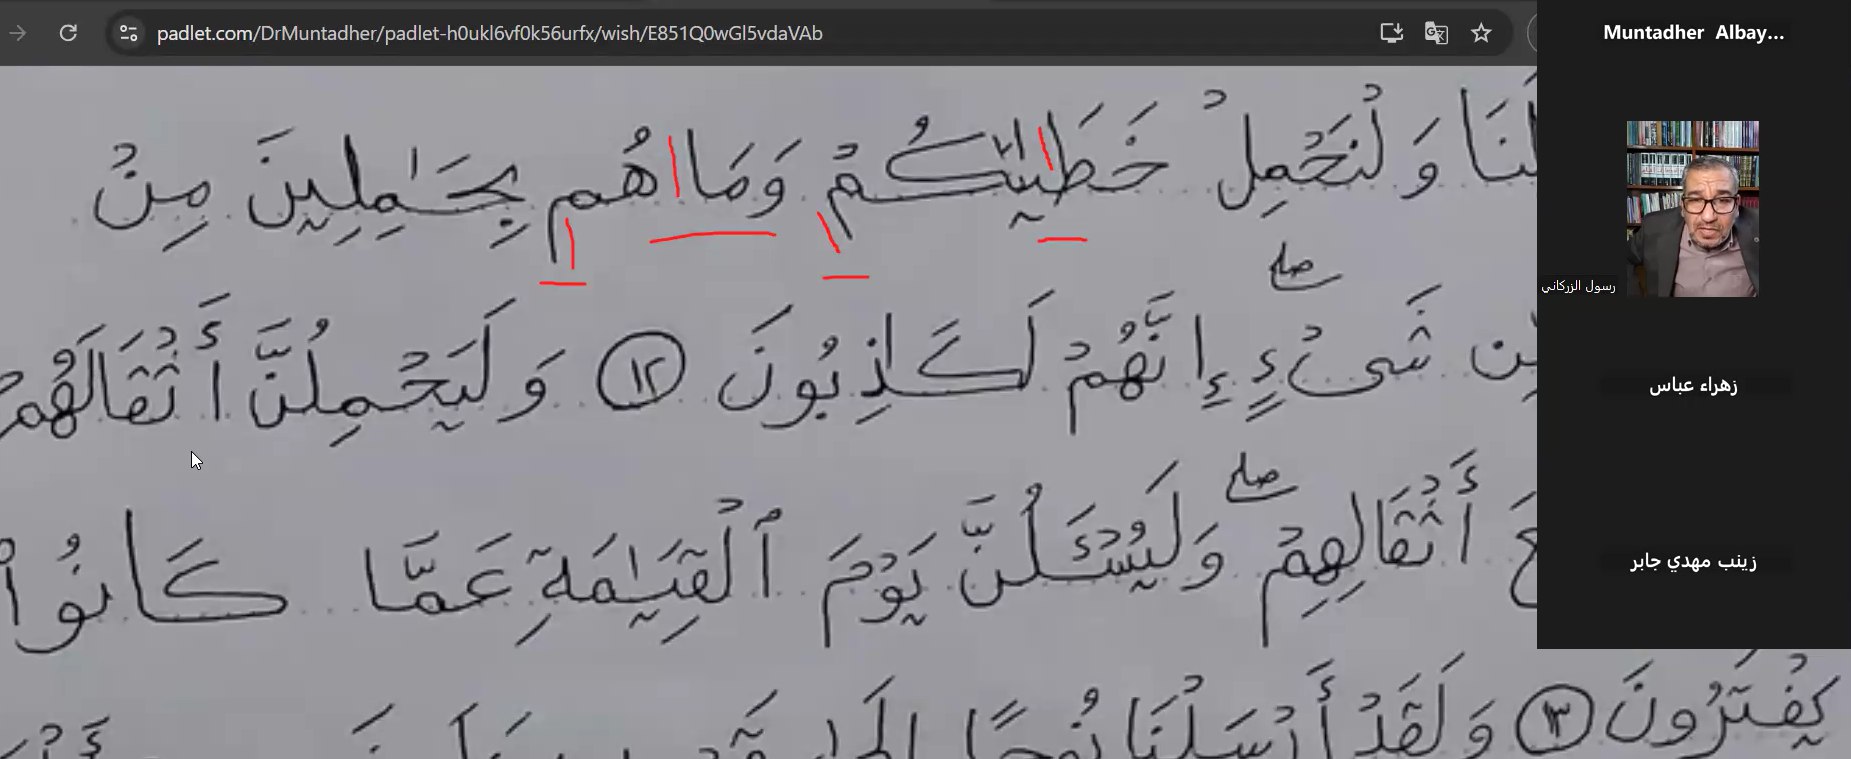 padlet.com/DrMuntadher/padlet-h0ukl6vf0k56urfx/wish/E851Q0wGl5vdaVAb
Muntadher Albay...
رسول الزركاني
زهراء عباس
زينب مهدي جابر
وَلْنَحْمِلْ خَطَٰيَٰكُمْ وَمَا هُم بِحَٰمِلِينَ مِنْ
شَىْءٍ ۖ إِنَّهُمْ لَكَٰذِبُونَ ١٢ وَلَيَحْمِلُنَّ أَثْقَالَهُمْ
أَثْقَالِهِمْ ۖ وَلَيُسْـَٔلُنَّ يَوْمَ ٱلْقِيَٰمَةِ عَمَّا كَانُوا۟
يَفْتَرُونَ ١٣ وَلَقَدْ أَرْسَلْنَا نُوحًا